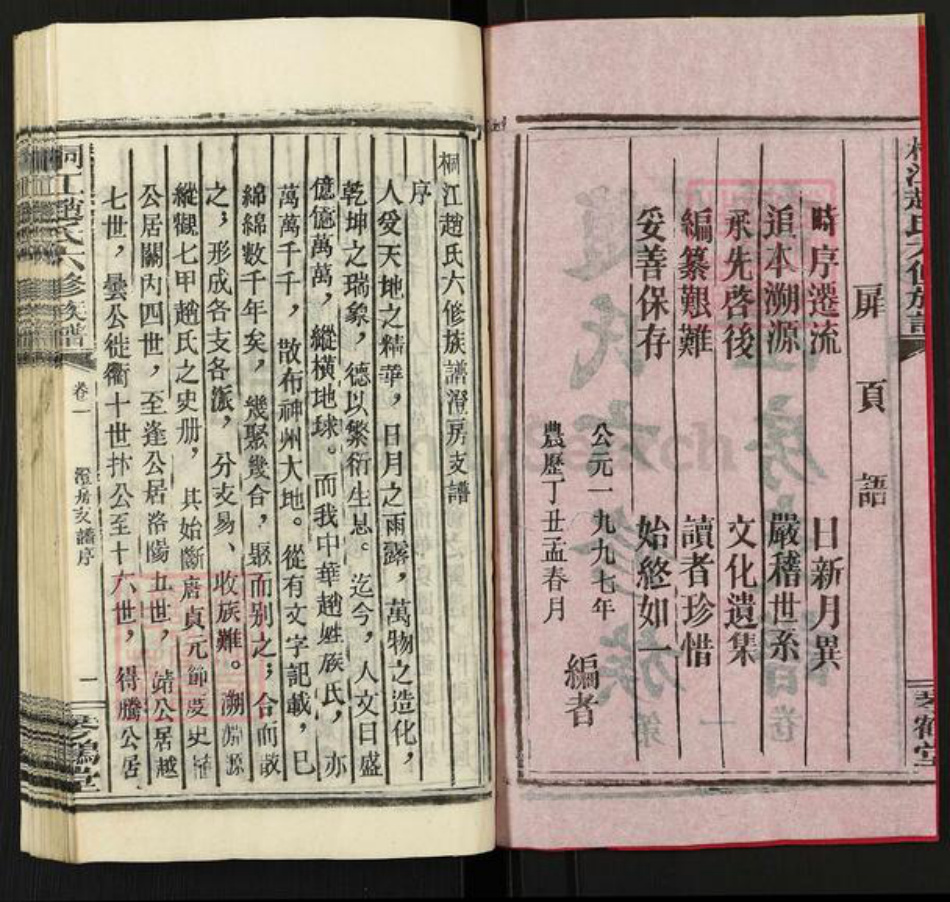 扉頁語
時序遷流 日新月異
追本溯源 嚴稽世系
承先啓後 文化遺集
編纂艱難 讀者珍惜
妥善保存 始終如一
公元一九九七年
農歷丁丑孟春月
編者
琴鶴堂
桐江趙氏六修族譜澄房支譜
序
人爱天地之精華，日月之雨露，萬物之造化，
乾坤之瑞象，德以繁衍生息。迄今，人文日盛
億億萬萬，縱橫地球。而我中華趙姓族氏，亦
萬萬千千，散布神州大地。從有文字記載，已
綿綿數千年矣，幾聚幾合，聚而别之；合而散
之；形成各支各派，分支易、收族難。溯源
縱觀七甲趙氏之史册，其始斷唐貞元節度史植
公居關内四世，至逢公居洛陽五世，靖公居越
七世，曇公徙衢十世抃公至十六世，得騰公居
桐江趙氏六修族譜
卷一
澄房支譜序
一
琴鶴堂